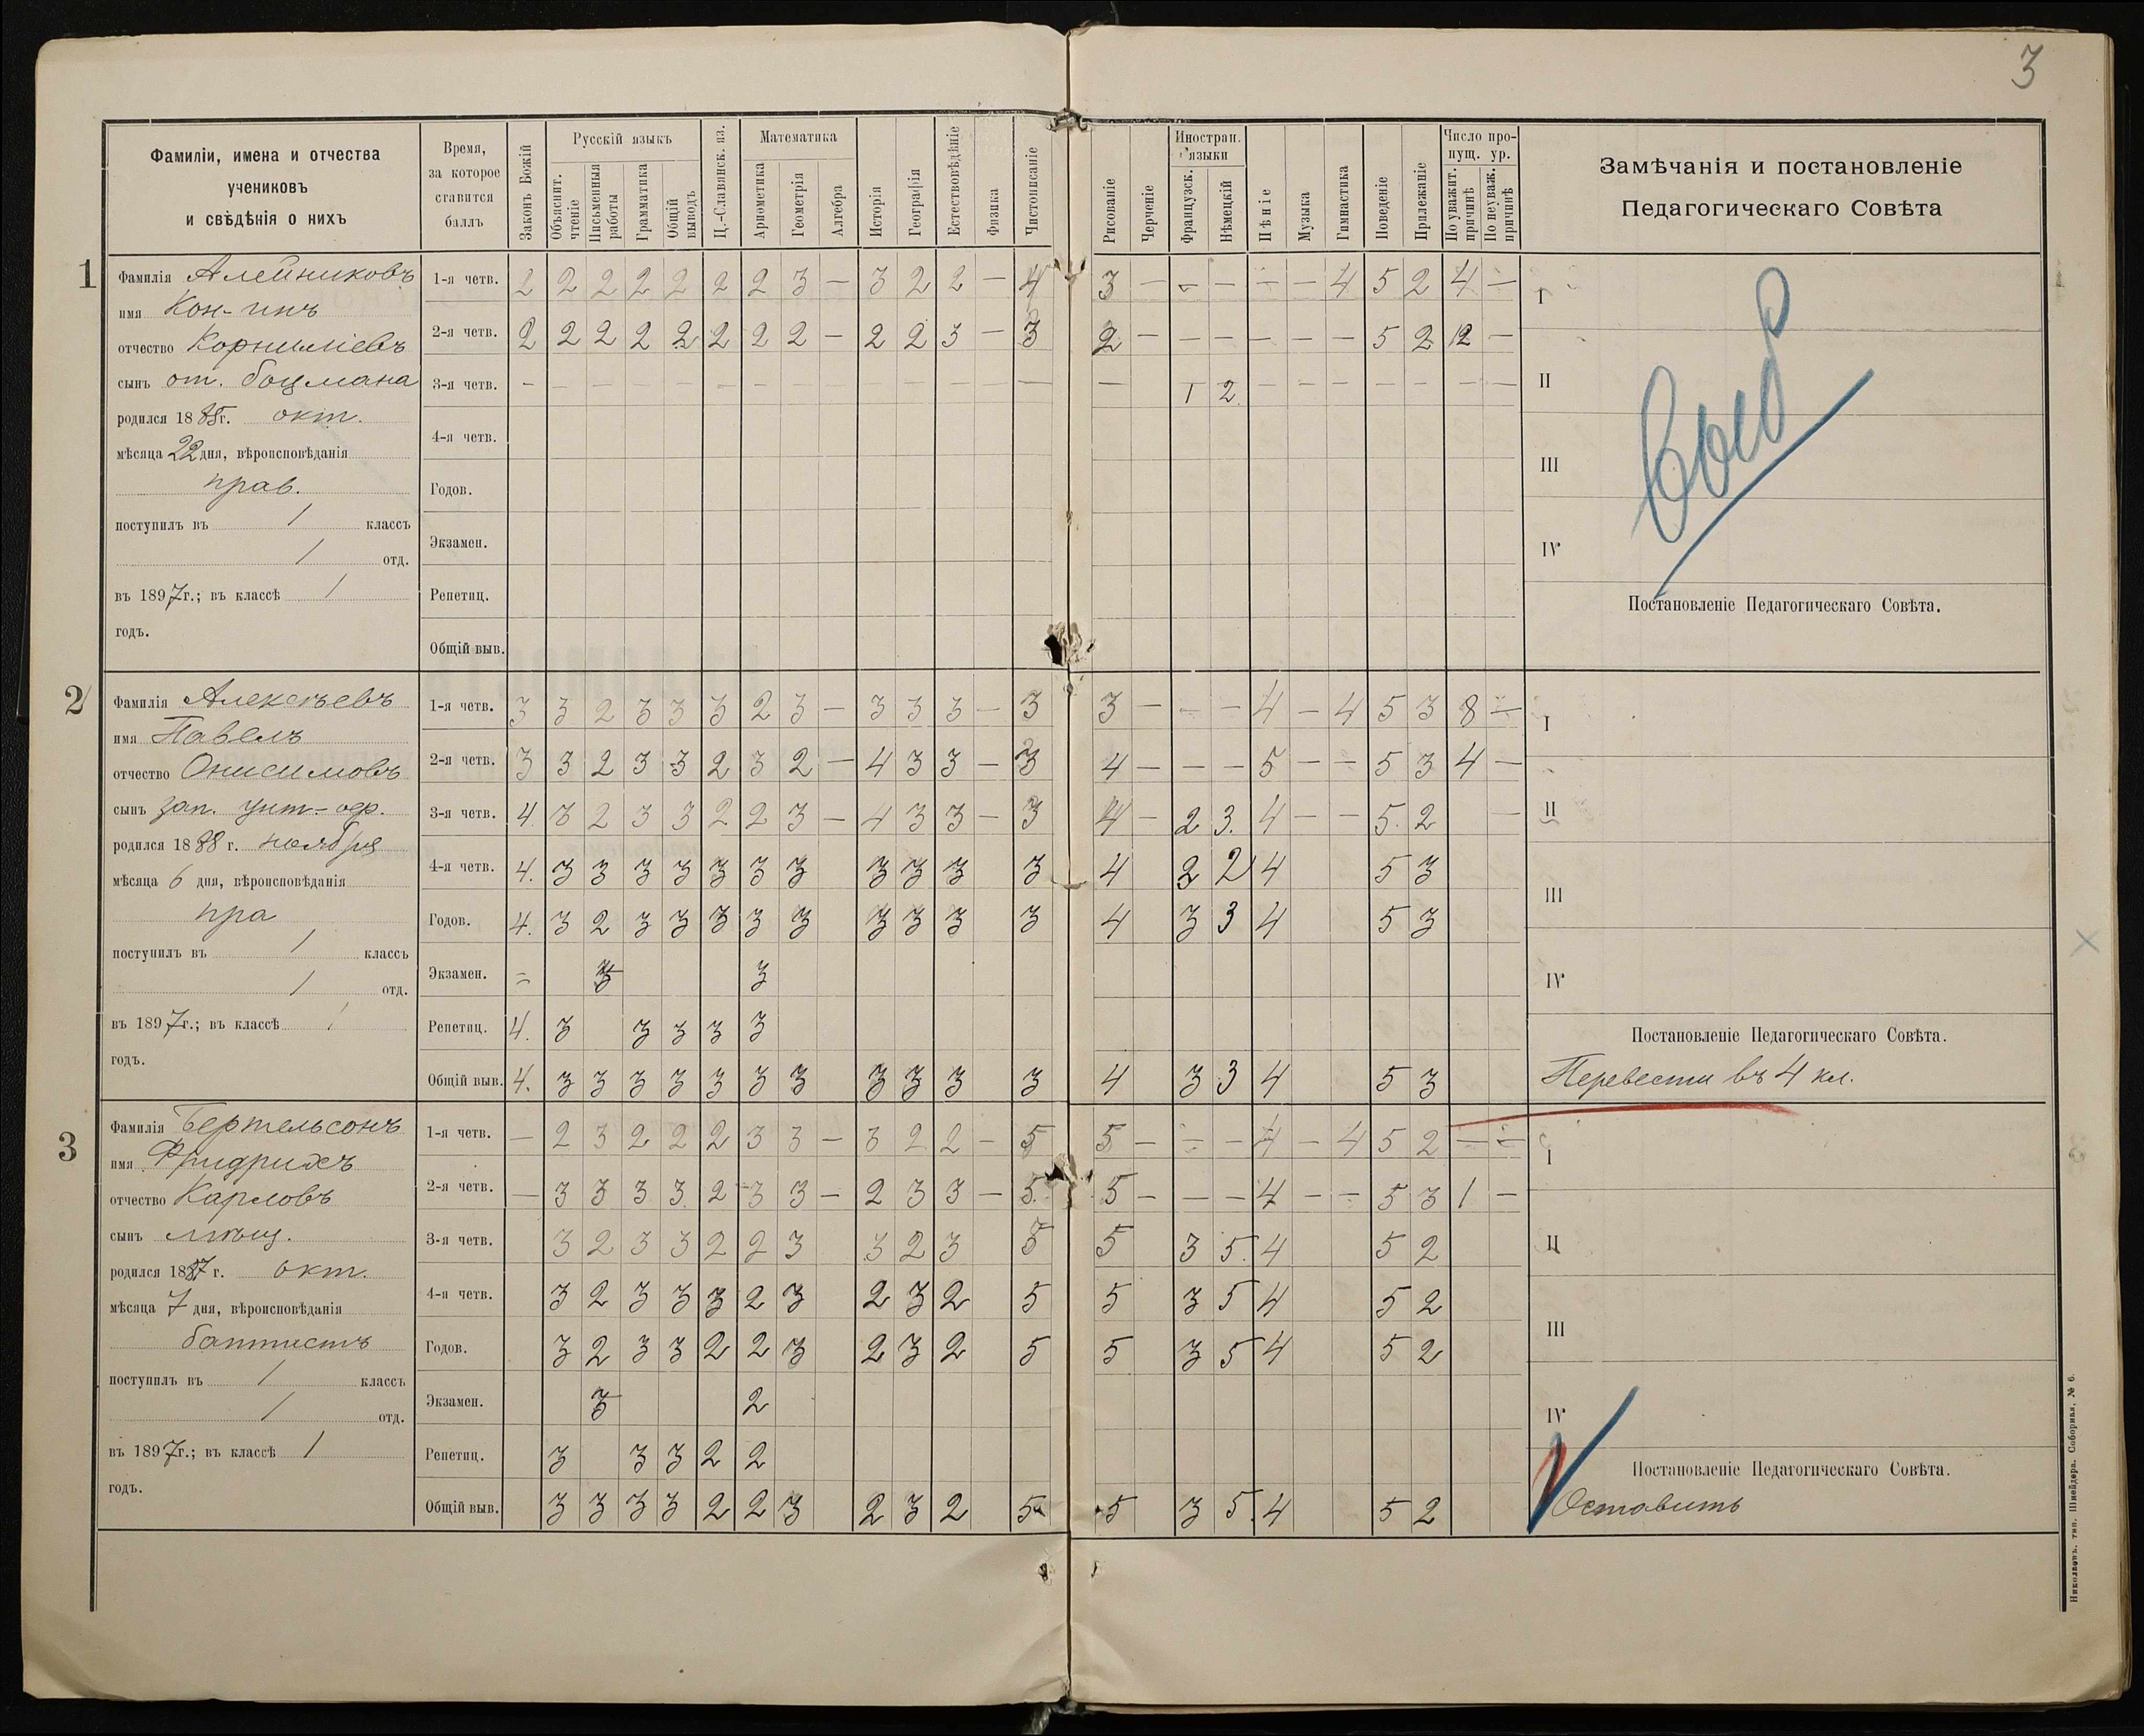 3
Фамиліи, имена и отчества
учениковъ
и свѣдѣнія о нихъ
Время,
за которое
ставится
баллъ
Законъ Божій
Русскій языкъ
Объяснит. чтеніе
Письменныя работы
Грамматика
Общій выводъ
Ц.-Славянск. яз.
Математика
Ариөметика
Геометрія
Алгебра
Исторія
Географія
Естествовѣдѣніе
Физика
Чистописаніе
Рисованіе
Черченіе
Иностран. языки
Французск.
Нѣмецкій
Пѣніе
Музыка
Гимнастика
Поведеніе
Прилежаніе
Число про-
пущ. ур.
По уважит. причинѣ
По неуваж. причинѣ
Замѣчанія и постановленіе
Педагогическаго Совѣта
1
Фамилія Алейниковъ
имя Кон-тинъ
отчество Корниліевъ
сынъ от. боцмана
родился 1885г. окт.
мѣсяца 22 дня, вѣроисповѣданія
прав.
поступилъ въ 1 классъ
1 отд.
въ 1897г.; въ классѣ 1
годъ.
1-я четв. 2 2 2 2 2 2 2 3 — 3 2 2 — 4 3 — — — — — 4 5 2 4 —
2-я четв. 2 2 2 2 2 2 2 2 — 2 2 3 — 3 2 — — — — — — 5 2 12 —
3-я четв. — — — — — — — — — — — — — — 1 2 — — — — — — —
4-я четв.
Годов.
Экзамен.
Репетиц.
Общій выв.
I
II
III
IV
Выб
Постановленіе Педагогическаго Совѣта.
2
Фамилія Алексѣевъ
имя Павелъ
отчество Онисимовъ
сынъ зап. унт-оф.
родился 1888 г. ноября
мѣсяца 6 дня, вѣроисповѣданія
пра
поступилъ въ 1 классъ
1 отд.
въ 1897г.; въ классѣ 1
годъ.
1-я четв. 3 3 2 3 3 3 2 3 — 3 3 3 — 3 3 — — — 4 — 4 5 3 8 —
2-я четв. 3 3 2 3 3 2 3 2 — 4 3 3 — 3 4 — — — 5 — — 5 3 4 —
3-я четв. 4. 3 2 3 3 2 2 3 — 4 3 3 — 3 4 — 2 3. 4 — — 5. 2 —
4-я четв. 4. 3 3 3 3 3 3 3 3 3 3 3 4 3 2 4 5 3
Годов. 4. 3 2 3 3 3 3 3 3 3 3 3 4 3 3 4 5 3
Экзамен. — 3 3
Репетиц. 4. 3 3 3 3 3
Общій выв. 4. 3 3 3 3 3 3 3 3 3 3 3 4 3 3 4 5 3
I
II
III
IV
Постановленіе Педагогическаго Совѣта.
Перевести въ 4 кл.
3
Фамилія Бертельсонъ
имя Фридрихъ
отчество Карловъ
сынъ мѣщ.
родился 1887 г. окт.
мѣсяца 7 дня, вѣроисповѣданія
баптистъ
поступилъ въ 1 классъ
1 отд.
въ 1897г.; въ классѣ 1
годъ.
1-я четв. — 2 3 2 2 2 3 3 — 3 2 2 — 5 5 — — — 4 — 4 5 2 — —
2-я четв. — 3 3 3 3 2 3 3 — 2 3 3 — 5 5 — — — 4 — — 5 3 1 —
3-я четв. 3 2 3 3 2 2 3 3 2 3 5 5 3 5. 4 5 2
4-я четв. 3 2 3 3 3 2 3 2 3 2 5 5 3 5 4 5 2
Годов. 3 2 3 3 2 2 3 2 3 2 5 5 3 5 4 5 2
Экзамен. 3 2
Репетиц. 3 3 3 2 2
Общій выв. 3 3 3 3 2 2 3 2 3 2 5 5 3 5. 4 5 2
I
II
III
IV
Постановленіе Педагогическаго Совѣта.
Оставить
Николаевъ. тип. Шнейдера. Соборная, № 6.